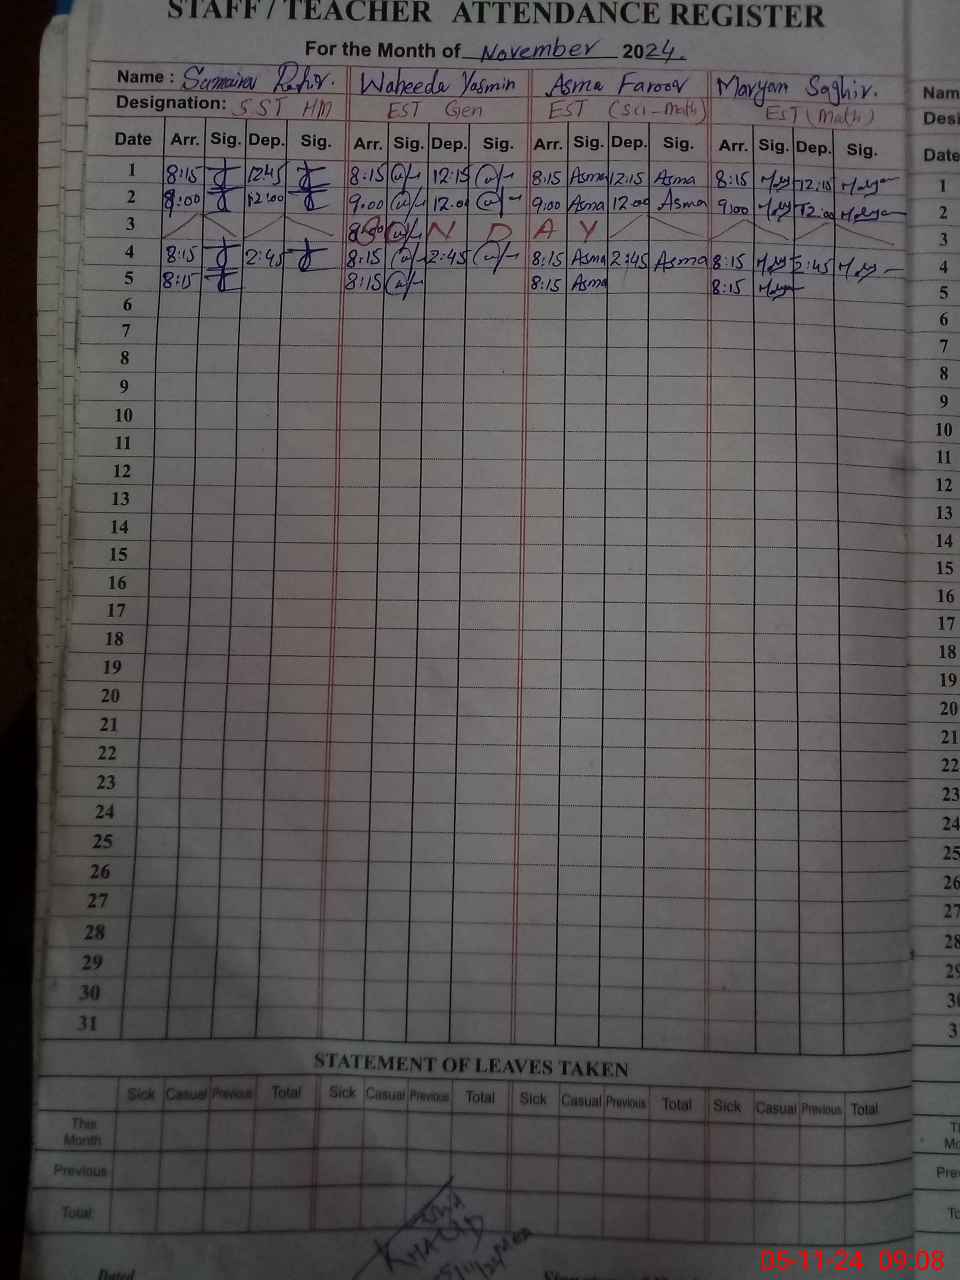 STAFF / TEACHER ATTENDANCE REGISTER
For the Month of November 2024.
Name : Sumaira Waheeda Yasmin Asma Farooq Maryam Saghir. Nam
Designation: SST HM EST Gen EST (Sci-Math) EST (Math) Desi
Date Arr. Sig. Dep. Sig. Arr. Sig. Dep. Sig. Arr. Sig. Dep. Sig. Arr. Sig. Dep. Sig. Date
1 8:15 12:45 8:15 12:15 8:15 Asma 12:15 Asma 8:15 12:15 1
2 9:00 12:00 9:00 12:00 9:00 Asma 12:00 Asma 9:00 12:00 2
3 N D A Y 3
4 8:15 2:45 8:15 2:45 8:15 Asma 2:45 Asma 8:15 2:45 4
5 8:15 8:15 8:15 Asma 8:15 5
6 6
7 7
8 8
9 9
10 10
11 11
12 12
13 13
14 14
15 15
16 16
17 17
18 18
19 19
20 20
21 21
22 22
23 23
24 24
25 25
26 26
27 27
28 28
29 29
30 30
31 3
STATEMENT OF LEAVES TAKEN
Sick Casual Previous Total Sick Casual Previous Total Sick Casual Previous Total Sick Casual Previous Total
This Month
Previous Pre
Total To
KHALID
Dated
05-11-24 09:08